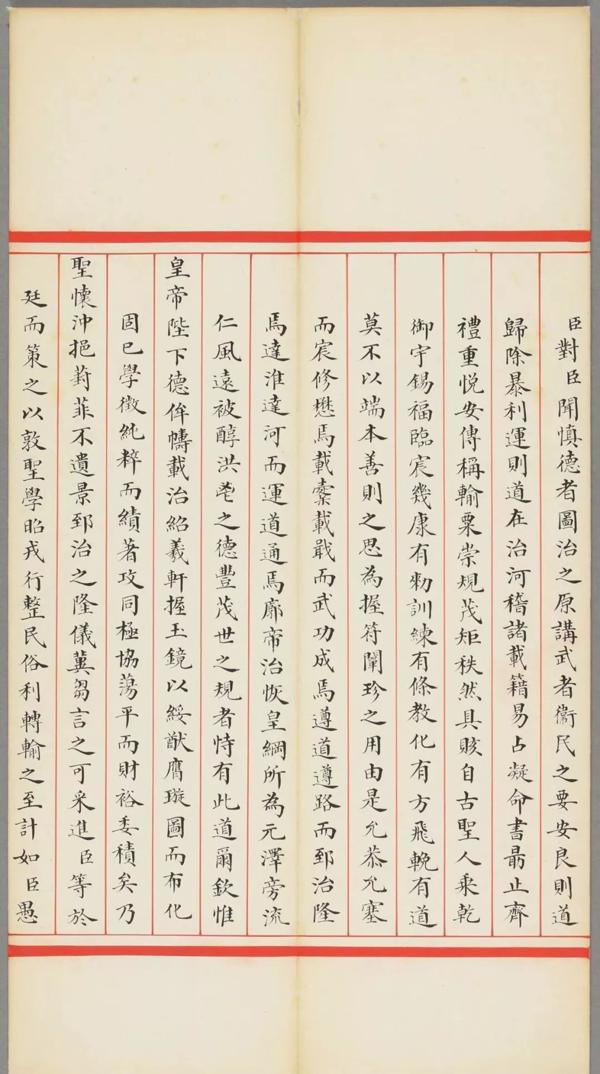 臣對臣聞慎德者圖治之原講武者衞民之要安良則道
歸除暴利運則道在治河稽諸載籍易占凝命書最止齊
禮重悦安傳稱輸粟崇規茂矩秩然具賅自古聖人乘乾
御宇錫福臨宸幾康有勑訓練有條教化有方飛輓有道
莫不以端本善則之思為握符闡珍之用由是允恭允塞
而宸修懋焉載櫜載戢而武功成焉遵道遵路而郅治隆
焉達淮達河而運道通焉廓帝治恢皇綱所為元澤旁流
仁風遠被醇洪鬯之德豐茂世之規者恃有此道爾欽惟
皇帝陛下德侔幬載治紹羲軒握玉鏡以綏猷膺璇圖而布化
固已學徵純粹而績著攻同極協蕩平而財裕委積矣乃
聖懷沖挹葑菲不遺景郅治之隆儀冀芻言之可采進臣等於
廷而策之以敦聖學昭戎行整民俗利轉輸之至計如臣愚